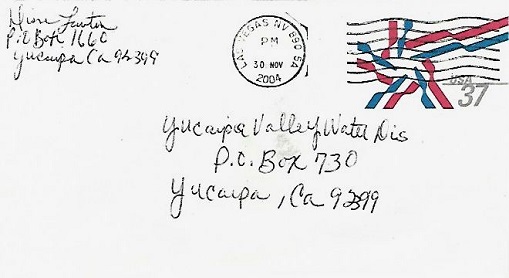 P.O Box 1660
Yucaipa Ca 92399
LAS VEGAS NV 890 54
PM
30 NOV
2004
USA
37
Yucaipa Valley Water Dis
P.O. Box 730
Yucaipa, Ca 92399